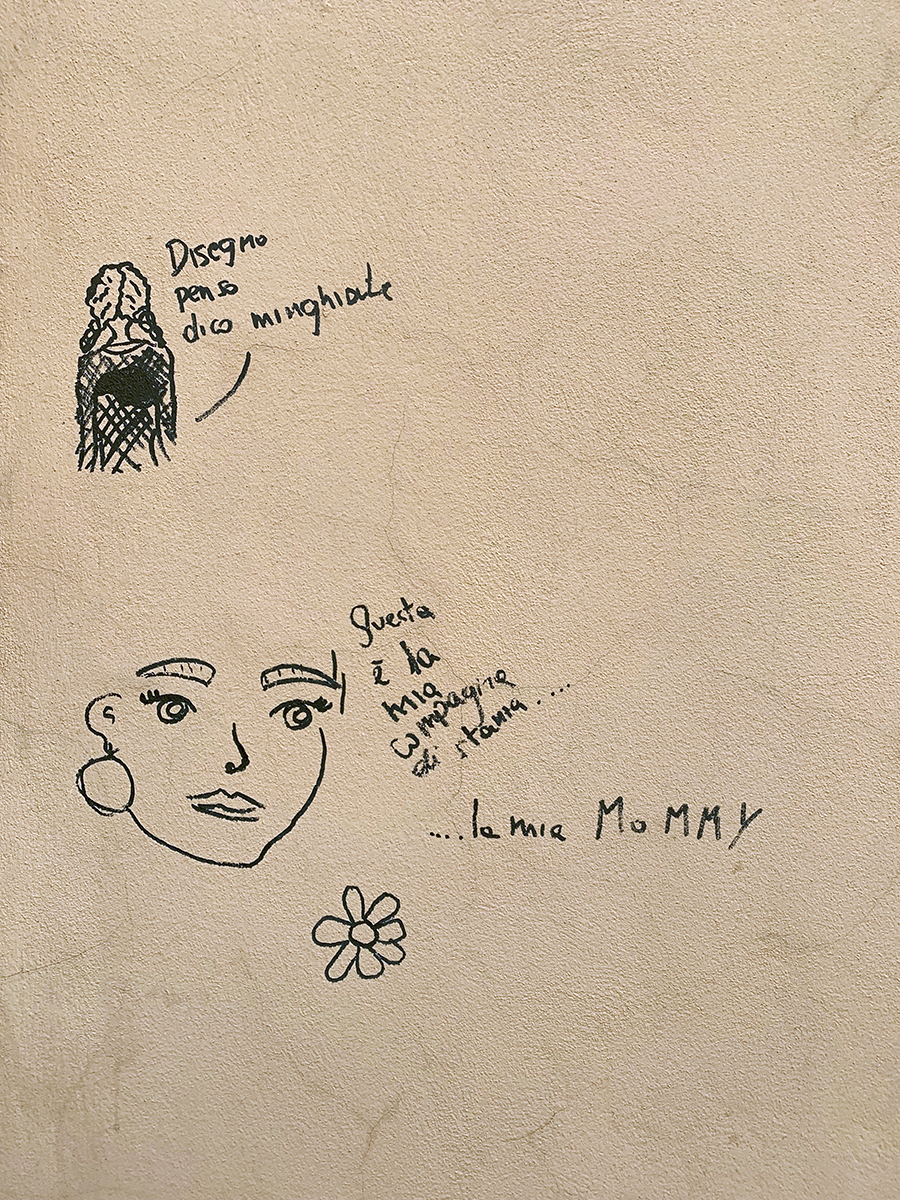 Disegno
penso
dico minghiate
Questa
è la
mia
compagna
di stanza....
....la mia MoMMY